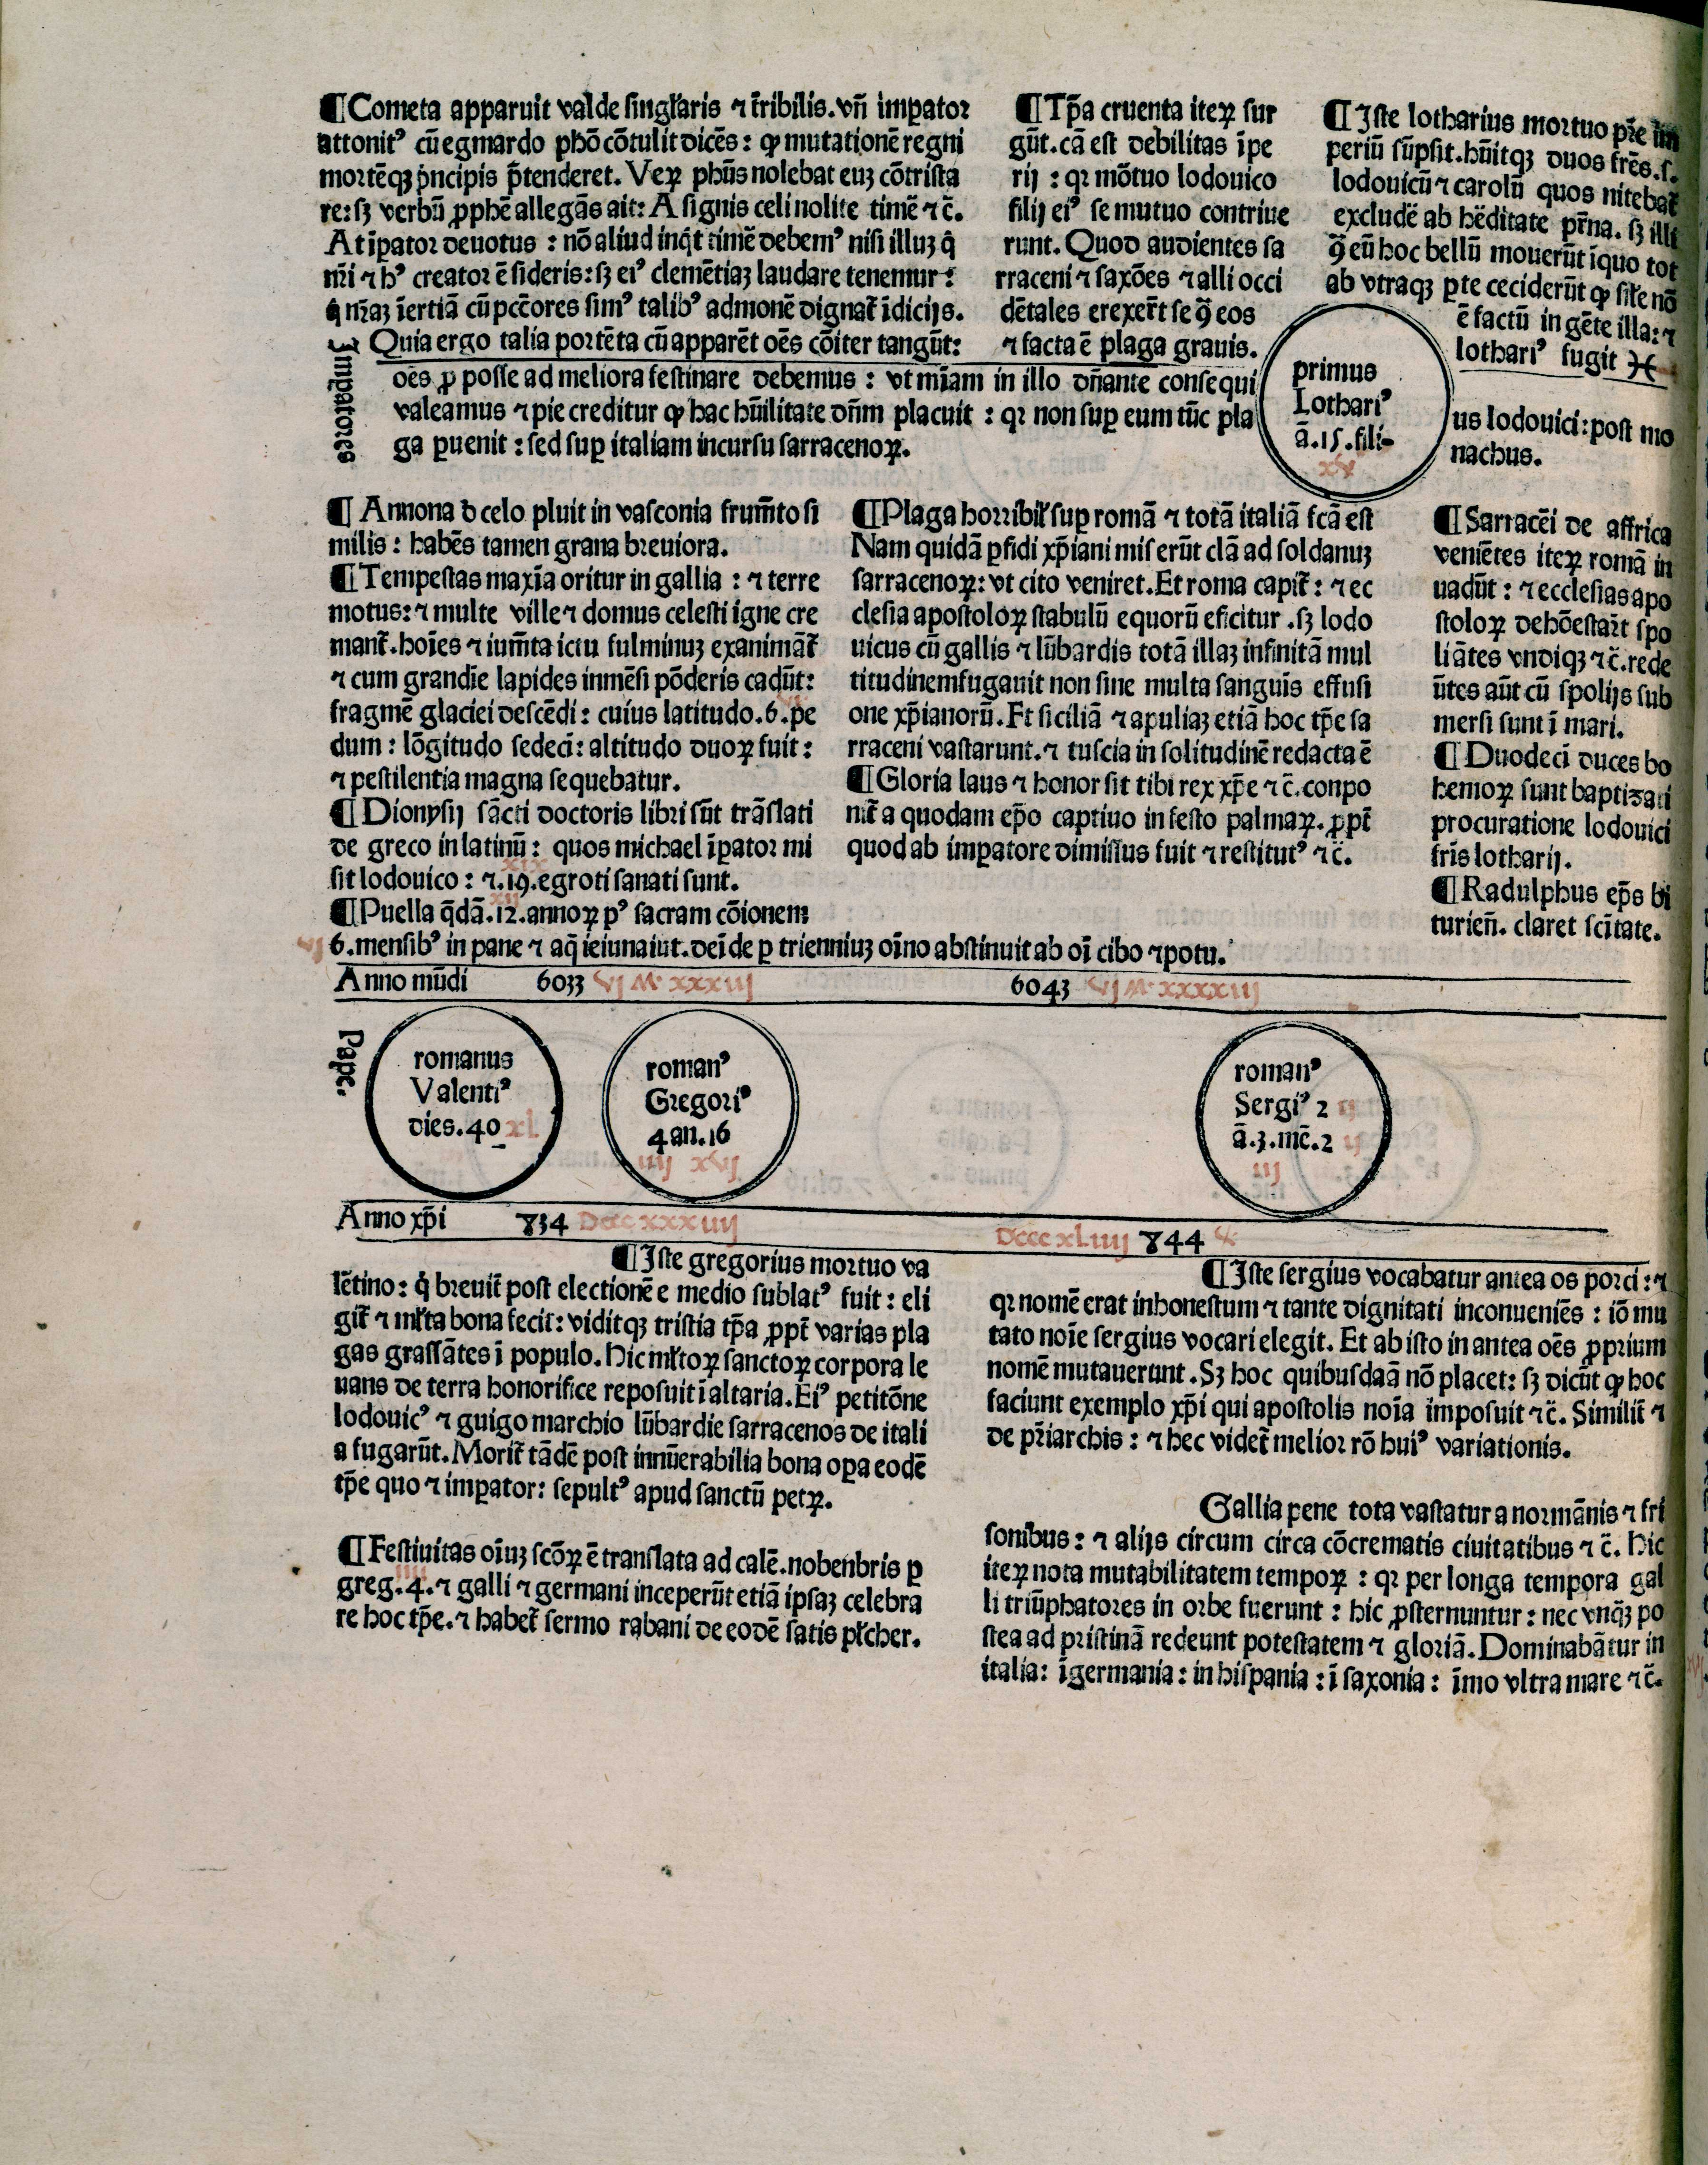 ¶Cometa apparuit valde singl'aris ⁊ t̄ribilis. vn̄ imꝑator
attonitꝰ cū egmardo ph̄o cōtulit dicēs : ꝙ mutationē regni
mortēqꝫ pͥncipis p̄tenderet. Veꝝ ph̄us nolebat euꝫ cōtrista
re: sꝫ verbū ꝓphē allegās ait: A signis celi nolite timē ⁊ c̄.
At īꝑator deuotus : nō aliud inqͥt timē debemꝰ nisi illuꝫ qͥ
nr̄i ⁊ hꝰ creator ē sideris: sꝫ eiꝰ clemētiaꝫ laudare tenemur :
qͥ nr̄aꝫ īertiā cū pccōres simꝰ talibꝰ admonē dignat̄ īdicijs.
Quia ergo talia portēta cū apparēt oēs cōiter tangūt:
oēs ꝓ posse ad meliora festinare debemus : vt mīam in illo dn̄ante consequi
valeamus ⁊ pie creditur ꝙ hac hūilitate dn̄m placuit : qꝛ non suꝑ eum tūc pla
ga ꝑuenit : sed suꝑ italiam incursu sarracenoꝝ.
Imꝑatores
¶Tp̄a cruenta iteꝝ sur
gūt. cā est debilitas īpe
rij : qꝛ mōtuo lodouico
filij eiꝰ se mutuo contriue
runt. Quod audientes sa
rraceni ⁊ saxōes ⁊ alli occi
dētales erexer̄t se ꝯ̄ eos
⁊ facta ē plaga grauis.
¶Iste lotharius mortuo pr̄e im
periū sūpsit. hūitqꝫ duos fr̄es. s.
lodouicū ⁊ carolū quos nitebat̄
excludē ab hēditate pr̄na. sꝫ illi
ꝯ̄ eū hoc bellū mouerūt īquo tot
ab vtraqꝫ ꝑte ceciderūt ꝙ sil'e nō
ē factū in gēte illa: ⁊
lothariꝰ fugit
primus
Lothariꝰ
ā. 15. fili-
xv
us lodouici: post mo
nachus.
¶Annona d celo pluit in vasconia frum̄to si
milis : habēs tamen grana breuiora.
¶Tempestas maxīa oritur in gallia : ⁊ terre
motus: ⁊ multe ville ⁊ domus celesti igne cre
mant̄. hoīes ⁊ ium̄ta ictu fulminuꝫ exanimāt̄
⁊ cum grandīe lapides inmēsi pōderis cadūt:
fragmē glaciei descēdi : cuius latitudo. 6. pe
dum : lōgitudo sedecī: altitudo duoꝝ fuit :
⁊ pestilentia magna sequebatur.
¶Dionysij sācti doctoris libri sūt trāslati
de greco in latinū : quos michael īꝑator mi
xix
sit lodouico : ⁊. 19. egroti sanati sunt.
xij
¶Puella qͣdā. 12. annoꝝ pꝰ sacram cōionem
vj 6. mensibꝰ in pane ⁊ aqͣ ieiunaiut. deīde ꝑ trienniuꝫ oīno abstinuit ab oī cibo ⁊ potu.
¶Plaga horribil' suꝑ romā ⁊ totā italiā fcā est
Nam quidā ꝑfidi xp̄iani miserūt clā ad soldanuꝫ
sarracenoꝝ: vt cito veniret. Et roma capit̄ : ⁊ ec
clesia apostoloꝝ stabulū equorū eficitur. sꝫ lodo
uicus cū gallis ⁊ lūbardis totā illaꝫ infinitā mul
titudinem fugauit non sine multa sanguīs effusi
one xp̄ianorū. Et siciliā ⁊ apuliaꝫ etiā hoc tp̄e sa
rraceni vastarunt. ⁊ tuscia in solitudinē redacta ē
¶Gloria laus ⁊ honor sit tibi rex xp̄e ⁊ c̄. conpo
nit̄ a quodam ep̄o captiuo in festo palmaꝝ. ꝓpt̄
quod ab imꝑatore dimissus fuit ⁊ restitutꝰ ⁊ c̄.
¶Sarracēi de affrica
veniētes iteꝝ romā in
uadūt : ⁊ ecclesias apo
stoloꝝ dehōestar̄t spo
liātes vndiqꝫ ⁊ c̄. rede
ūtes aūt cū spolijs sub
mersi sunt ī mari.
¶Duodecī duces bo
hemoꝝ sunt baptizati
procuratione lodouici
fr̄is lotharij.
¶Radulphus ep̄s bi
turieñ. claret scītate.
Anno mūdi 6033 vj M xxxiij 6043 vj M xxxxiij
Pape.
romanus
Valentiꝰ
dies. 40 xl
romanꝰ
Gregoriꝰ
4 an. 16
iiij xvj
romanꝰ
Sergiꝰ 2 ij
ā. 3. mē. 2 ij
iij
Anno xp̄i 834 Dccc xxxiiij Dccc xliiij 844
¶Iste gregorius mortuo va
lētino : qͥ breuit̄ post electionē e medio sublatꝰ fuit : eli
git̄ ⁊ ml'ta bona fecit : viditqꝫ tristia tp̄a ꝓpt̄ varias pla
gas grassātes ī populo. Hic ml'toꝝ sanctoꝝ corpora le
uans de terra honorifice reposuit ī altaria. Eiꝰ petitōne
lodouicꝰ ⁊ guigo marchio lūbardie sarracenos de itali
a fugarūt. Morit̄ tādē post innūerabilia bona oꝑa eodē
tp̄e quo ⁊ imꝑator: sepultꝰ apud sanctū petꝝ.
¶Festiuitas oīuꝫ scōꝝ ē translata ad calē. nobenbris ꝑ
iiij
greg. 4. ⁊ galli ⁊ germani inceperūt etiā ipsaꝫ celebra
re hoc tp̄e. ⁊ habet̄ sermo rabani de eodē satis pl'cher.
¶Iste sergius vocabatur antea os porci : ⁊
qꝛ nomē erat inhonestum ⁊ tante dignitati inconueniēs : iō mu
tato noīe sergius vocari elegit. Et ab isto in antea oēs ꝓprium
nomē mutauerunt. Sꝫ hoc quibusdaā nō placet: sꝫ dicūt ꝙ hoc
faciunt exemplo xp̄i qui apostolis noīa imposuit ⁊ c̄. Similit̄ ⁊
de pr̄iarchis : ⁊ hec videt̄ melior rō huiꝰ variationis.
Gallia pene tota vastatur a normānis ⁊ fri
sonibus : ⁊ alijs circum circa cōcrematis ciuitatibus ⁊ c̄. Hic
iteꝝ nota mutabilitatem tempoꝝ : qꝛ per longa tempora gal
li triūphatores in orbe fuerunt : hic ꝓsternuntur : nec vnqͣꝫ po
stea ad pristinā redeunt potestatem ⁊ gloriā. Dominabātur in
italia: ī germania : in hispania : ī saxonia : īmo vltra mare ⁊ c̄.